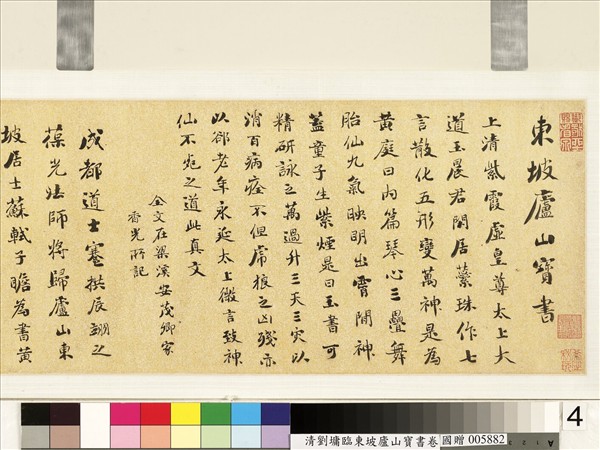 東坡廬山寶書
上清紫霞虛皇尊太上大
道玉晨君閑居蘂珠作七
言散化五形變萬神是為
黃庭曰內篇琴心三疊舞
胎仙九氣映明出霄間神
蓋童子生紫煙是曰玉書可
精研詠之萬過升三天三灾以
消百病痊不但虎狼之凶殘亦
以郤老年永延太上微言致神
仙不死之道此真文
全文在梁溪安茂卿家
香光附記
成都道士蹇拱辰翊之
葆光法師將歸廬山東
坡居士蘇軾子瞻為書黃
4
清劉墉臨東坡廬山寶書卷 國贈 005882